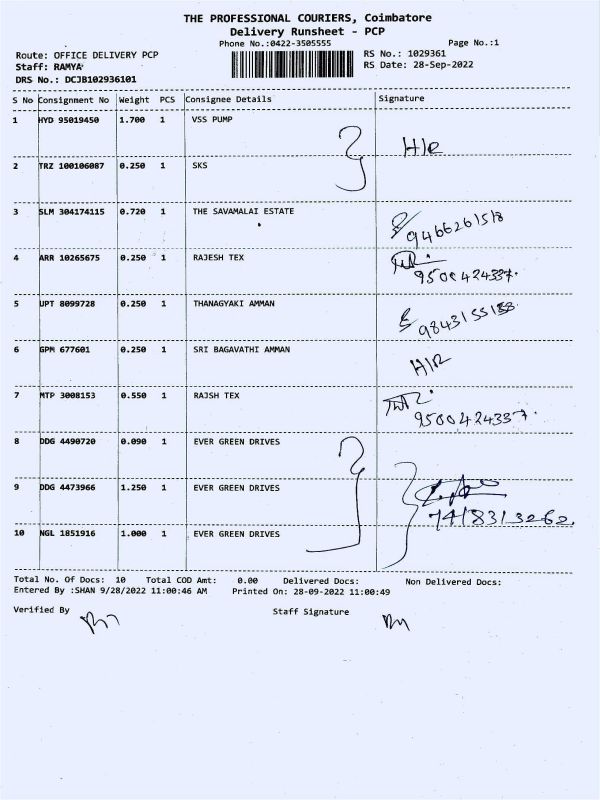 THE PROFESSIONAL COURIERS, Coimbatore
Delivery Runsheet - PCP
Phone No.:0422-3505555 Page No.:1
Route: OFFICE DELIVERY PCP RS No.: 1029361
Staff: RAMYA RS Date: 28-Sep-2022
DRS No.: DCJB102936101
S No Consignment No Weight PCS Consignee Details Signature
1 HYD 95019450 1.700 1 VSS PUMP
H/R
2 TRZ 100106087 0.250 1 SKS
3 SLM 304174115 0.720 1 THE SAVAMALAI ESTATE
9466261518
4 ARR 10265675 0.250 1 RAJESH TEX
9500424337.
5 UPT 8099728 0.250 1 THANAGYAKI AMMAN
6 GPM 677601 0.250 1 SRI BAGAVATHI AMMAN
H/R
7 MTP 3008153 0.550 1 RAJSH TEX
9500424337.
8 DDG 4490720 0.090 1 EVER GREEN DRIVES
9 DDG 4473966 1.250 1 EVER GREEN DRIVES
7418313262.
10 NGL 1851916 1.000 1 EVER GREEN DRIVES
Total No. Of Docs: 10 Total COD Amt: 0.00 Delivered Docs: Non Delivered Docs:
Entered By :SHAN 9/28/2022 11:00:46 AM Printed On: 28-09-2022 11:00:49
Verified By Staff Signature